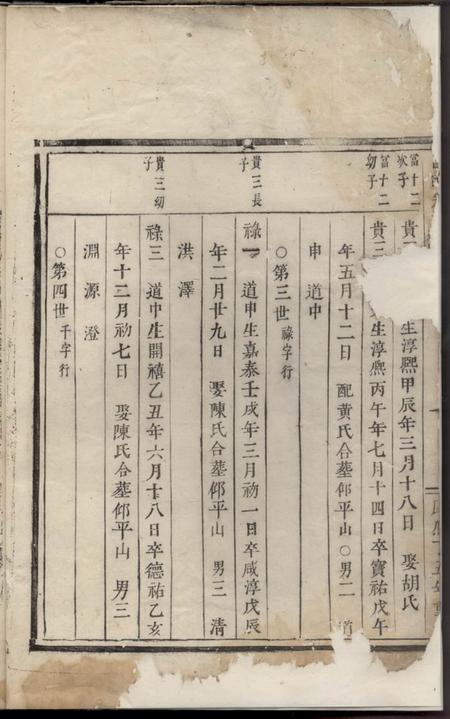 富十二
次子
貴
生淳熈甲辰年三月十八日　娶胡氏
富十二
幼子
貴三
生淳熈丙午年七月十四日卒寶祐戊午
年五月十二日　配黃氏合墓邱平山○男二　道
申　道中
○第三世祿字行
貴三長
子
祿一　道申生嘉泰壬戌年三月初一日卒咸淳戊辰
年二月廿九日　娶陳氏合墓邱平山　男三　清
洪　澤
貴三幼
子
祿三　道中生開禧乙丑年六月十八日卒德祐乙亥
年十二月初七日　娶陳氏合墓邱平山　男三
淵　源　澄
○第四世千字行